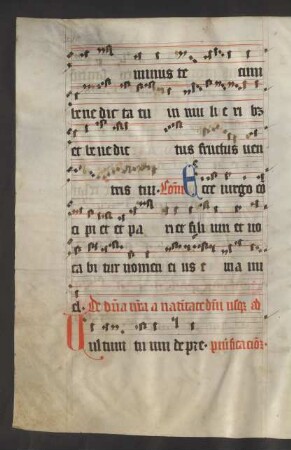 minus te cum
bene dic ta tu in mu li e ri bz
et bene dic tus fructus uen
tris tui. Com Ecce uirgo co
ci pi et et pa ri et fili um et uo
ca bi tur nomen ei us e ma nu
el. De dna nra a natiuitate dni usqz ad
Uul tum tu um de pre. purificacioez.